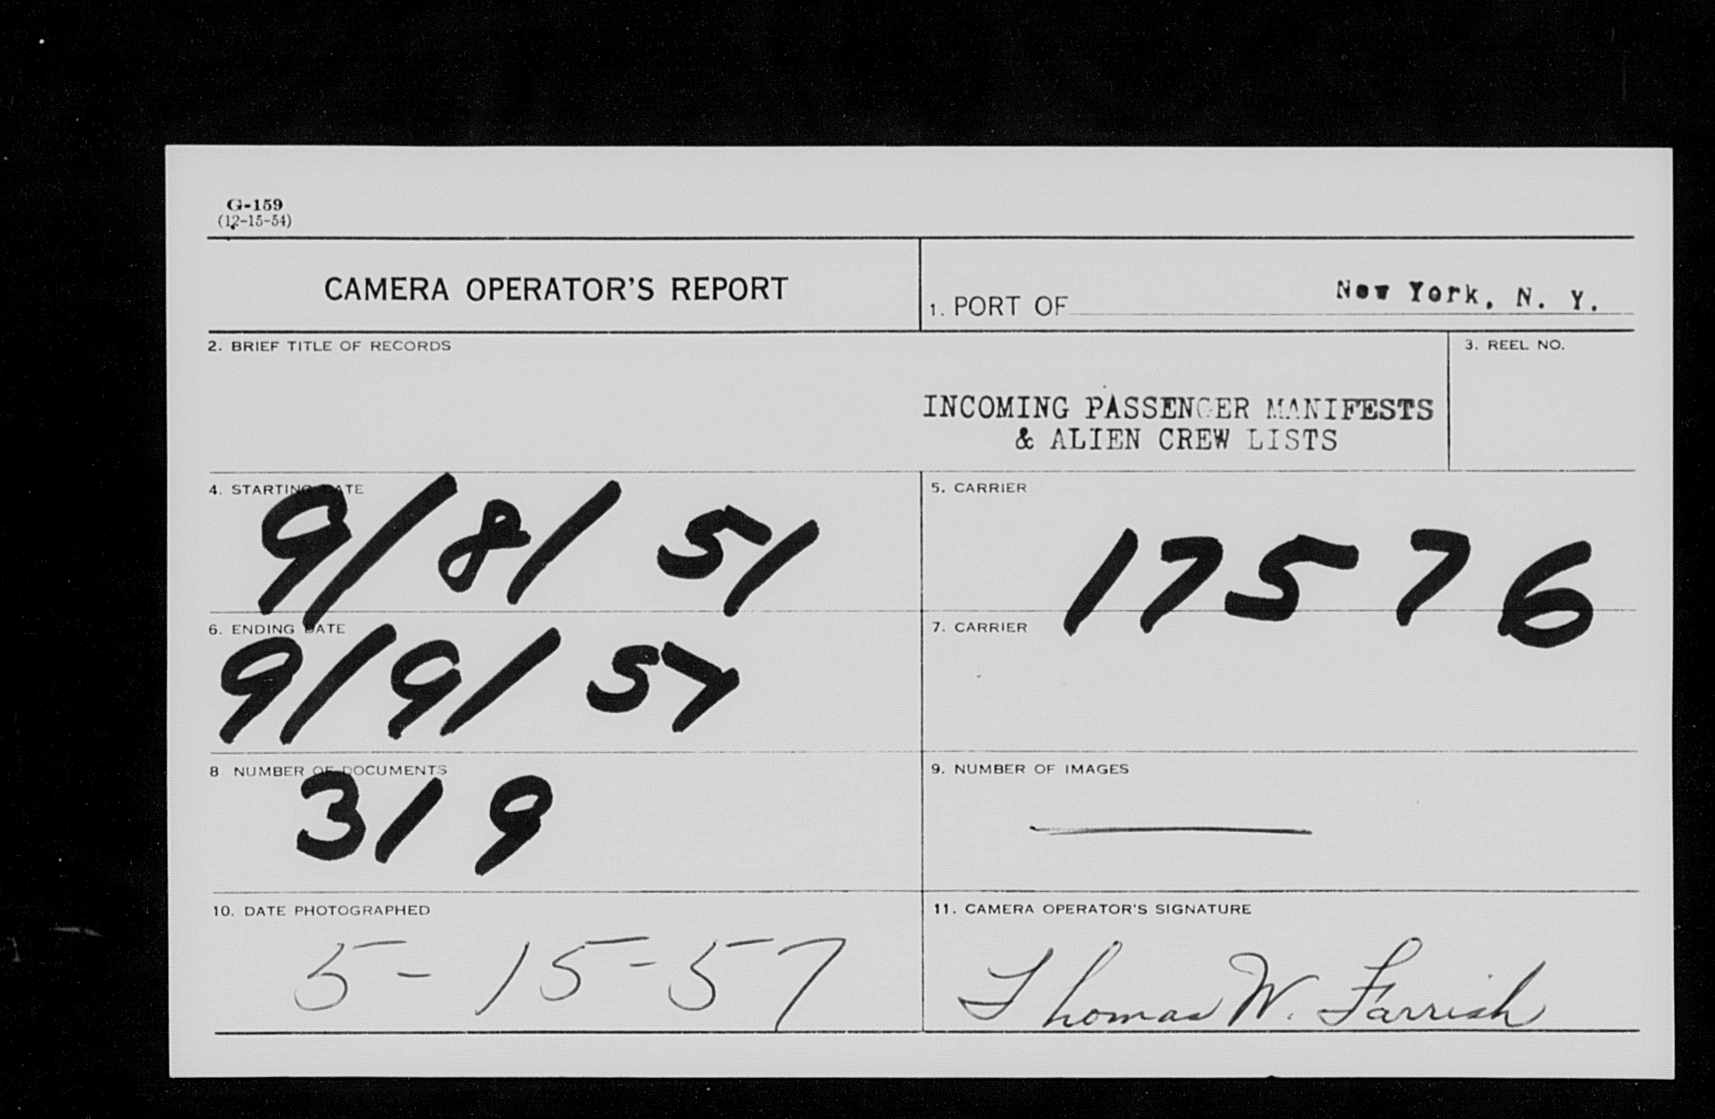 G-159
(12-15-54)
CAMERA OPERATOR'S REPORT
1. PORT OF New York, N. Y.
2. BRIEF TITLE OF RECORDS
INCOMING PASSENGER MANIFESTS
& ALIEN CREW LISTS
3. REEL NO.
4. STARTING DATE
9/8/51
5. CARRIER
17576
6. ENDING DATE
9/9/57
7. CARRIER
8 NUMBER OF DOCUMENTS
319
9. NUMBER OF IMAGES
10. DATE PHOTOGRAPHED
5-15-57
11. CAMERA OPERATOR'S SIGNATURE
Thomas W. Farrish